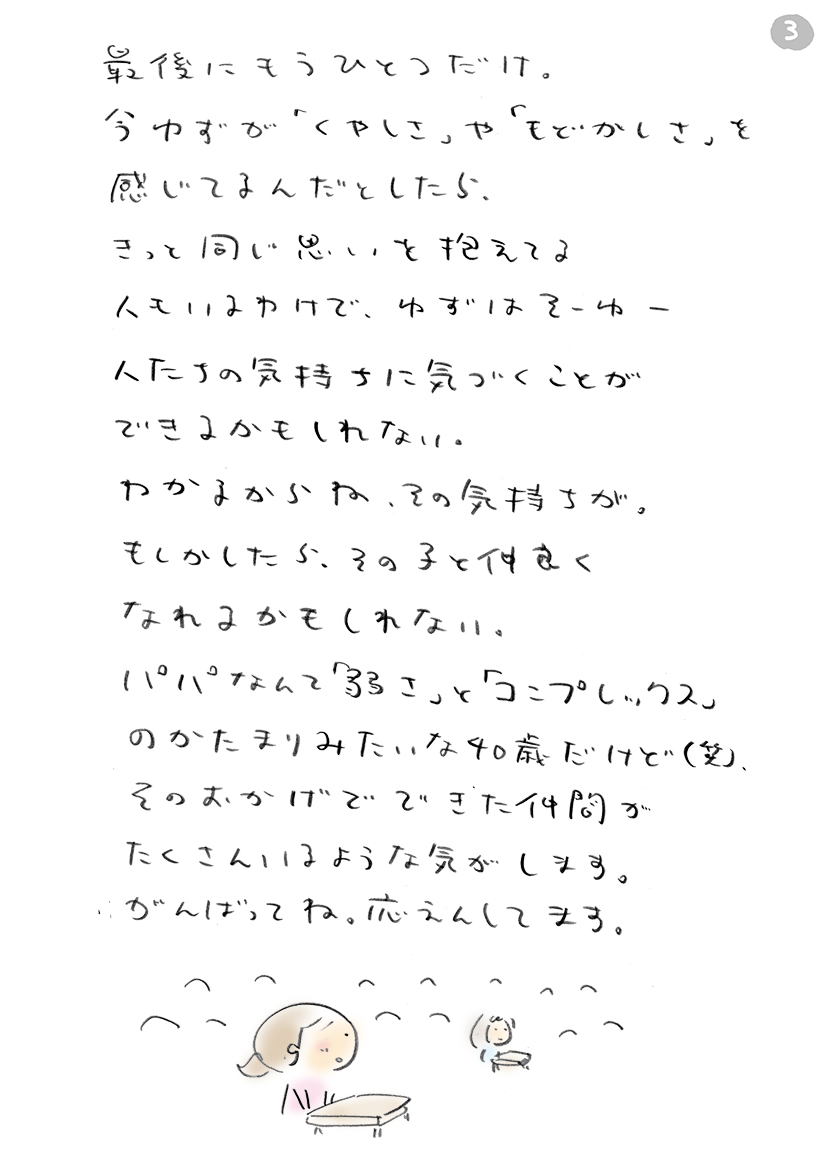 3
最後にもうひとつだけ。
今ゆずが「くやしさ」や「もどかしさ」を
感じてるんだとしたら、
きっと同じ思いを抱えてる
人もいるわけで、ゆずはそーゆー
人たちの気持ちに気づくことが
できるかもしれない。
わかるからね、その気持ちが。
もしかしたら、その子と仲良く
なれるかもしれない。
パパなんて「弱さ」と「コンプレックス」
のかたまりみたいな40歳だけど(笑)、
そのおかげでできた仲間が
たくさんいるような気がします。
がんばってね。応えんしてます。